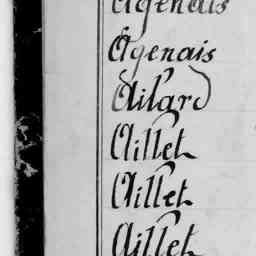 Agenais
Agenais
Ailard
Aillet
Aillet
Aillet